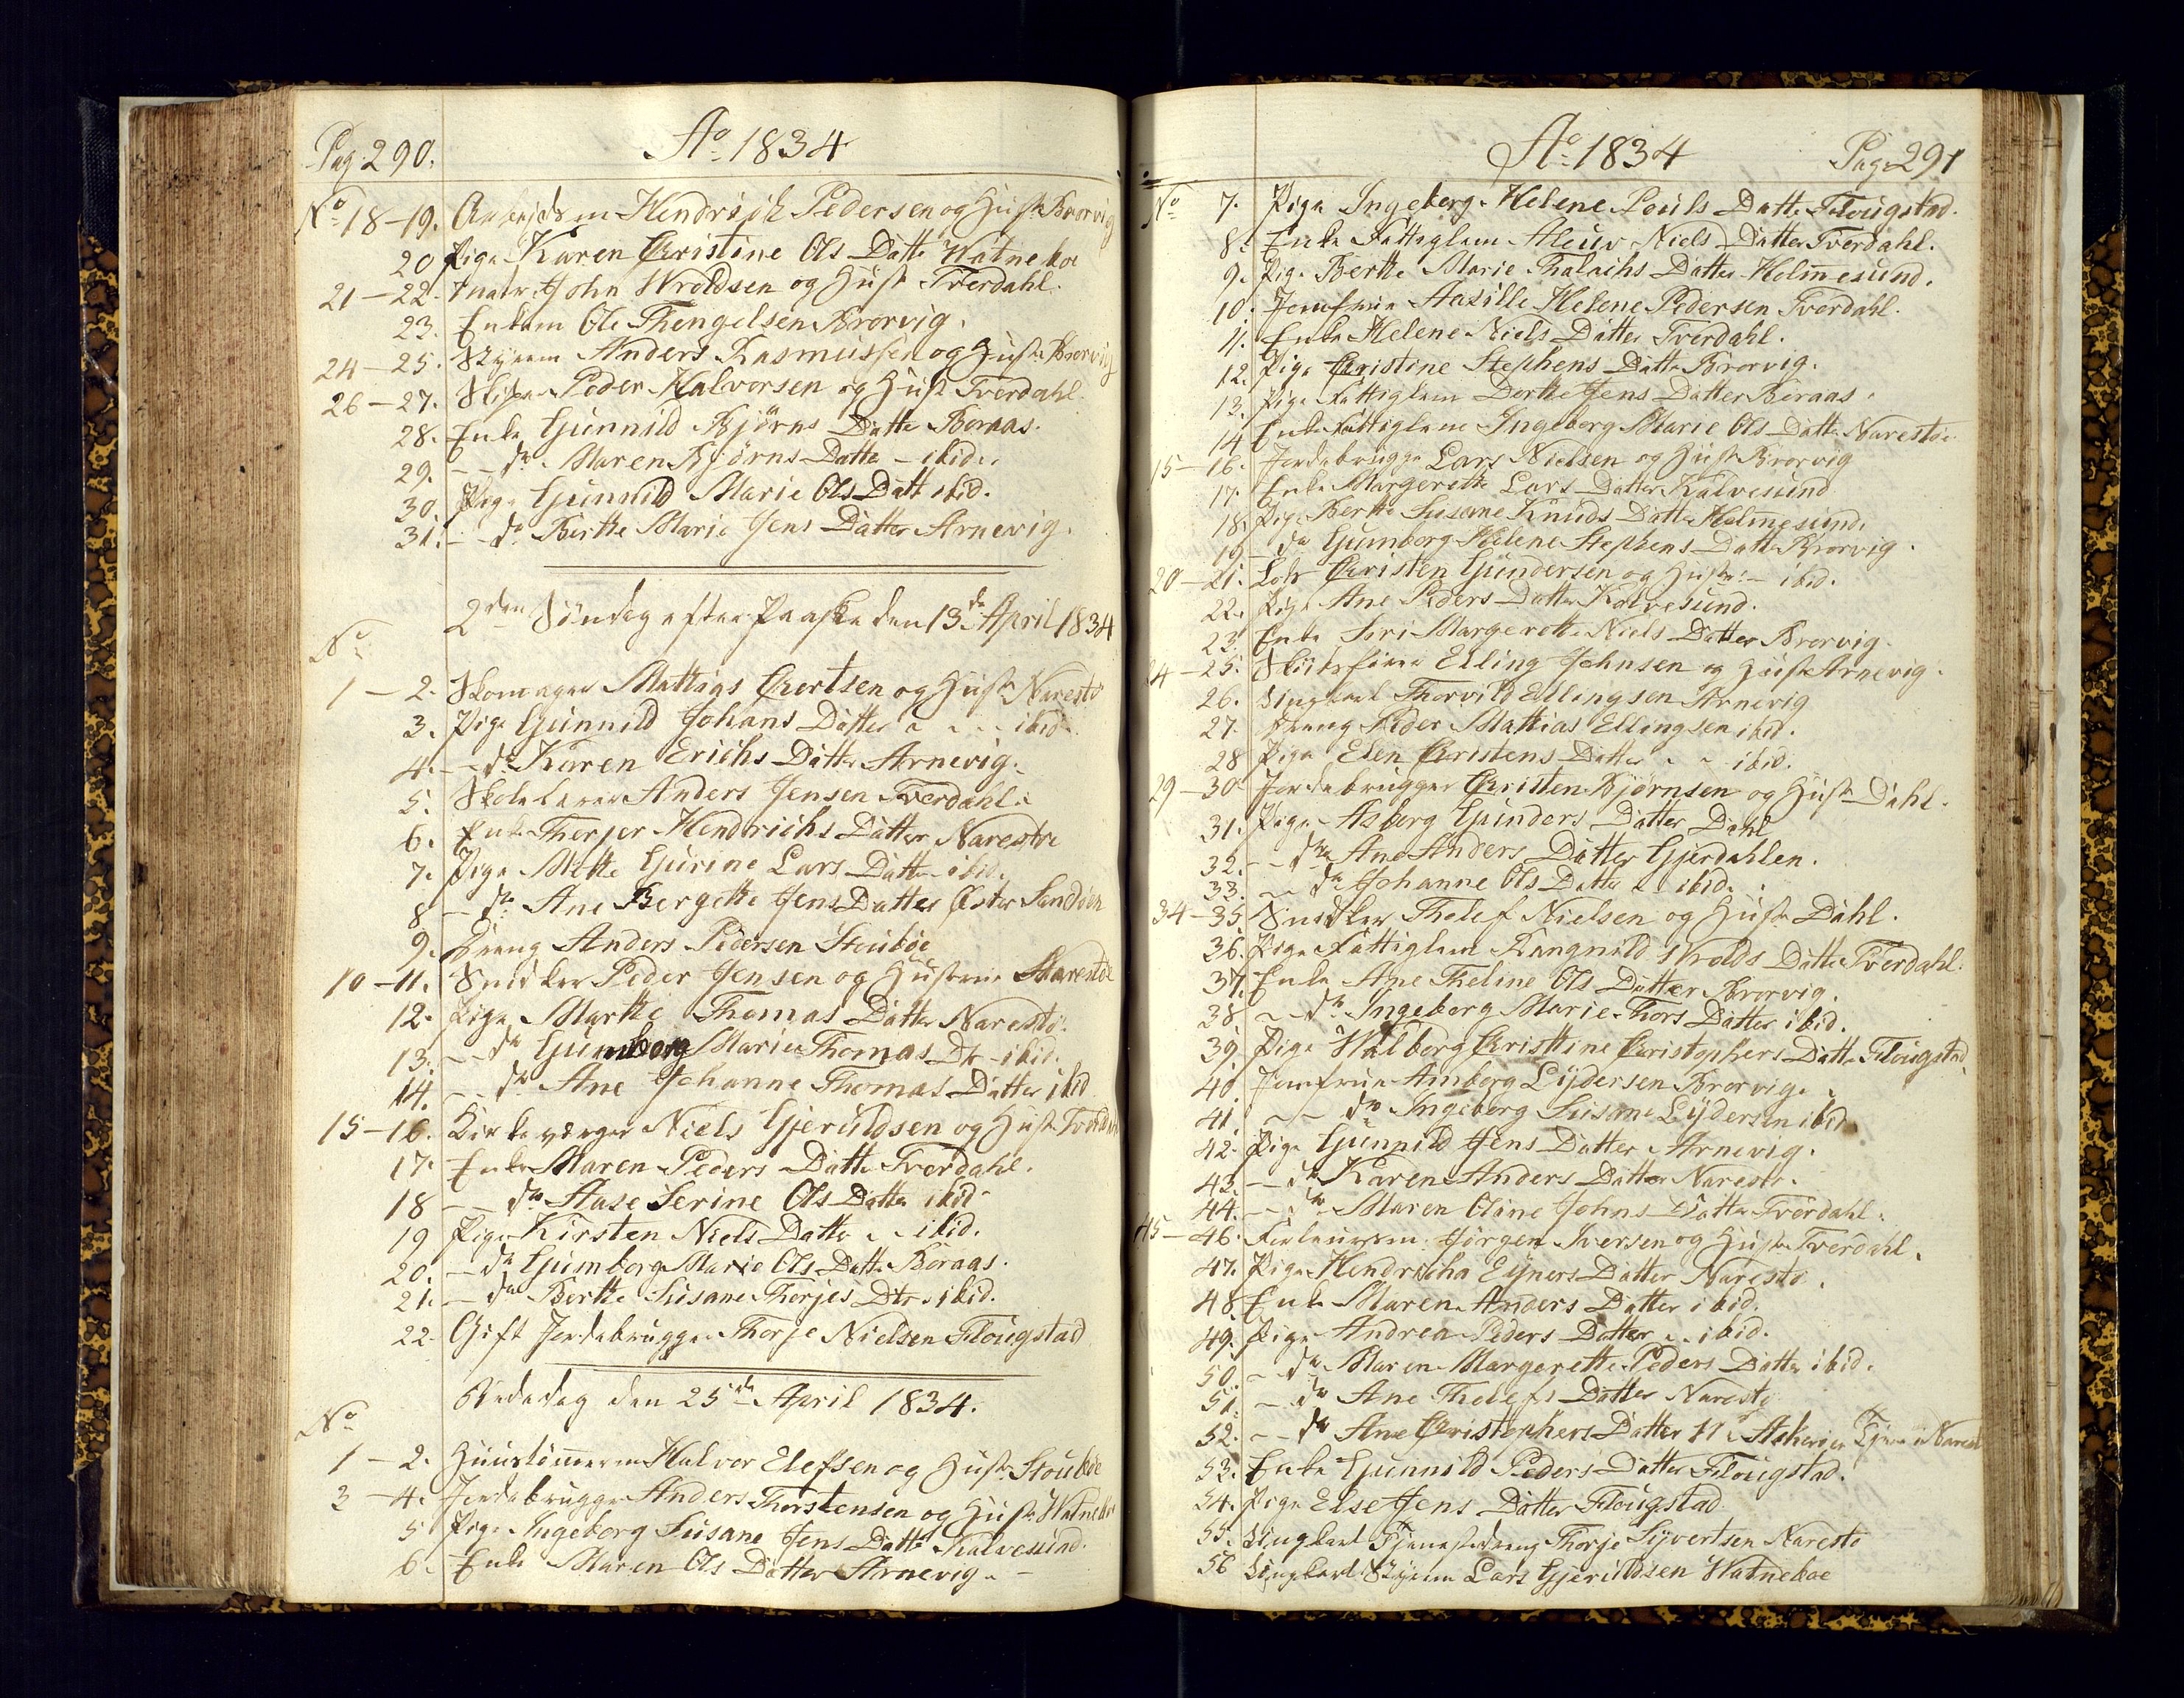 Pag: 290.
Ao 1834
No 18-19. Arbejdsm Hendrich Pedersen og Hustr Brorvig
20 Pige Karen Christine Ols Datter Watneboe
21-22. John Wroldsen og Hust Tverdahl.
23. Enkem Ole Thengelsen Brorvig.
24-25. Styrm Anders Rasmussen og Hustr Brorvig
26-27. Skipr Peder Halvorsen og Hust Tverdahl.
28. Enke Gunnild Bjørns Datter Boraas.
29. -- do Maren Bjørns Datte - ibid.
30. Pige Gunnild Marie Ols Datt ibid.
31. -- do Berthe Marie Jens Datter Arnevig.
2den Söndag efter Paaske den 13de April 1834
No
1-2. Skomager Mathias Evertsen og Hustr Narestø
3. Pige Gunnild Johans Datter - - - ibid.
4. -- do Karen Erichs Datter Arnevig.
5. Skolelærer Anders Jensen Tverdahl.
6. Enke Therjer Hendrichs Datter Narestøe
7. Pige Mette Gurine Lars Datter ibid.
8 -- do Ane Bergette Jens Datter Øster Sandøen
9. Dreng Anders Pedersen Stouboe
10-11. Snidker Peder Jensen og Hustrue Narestøe
12. Pige Marthe Thomas Datter Narestø.
13. -- do Gumborg Marie Thomas Dtr - ibid.
14. -- do Ane Johanne Thomas Datter ibid
15-16. Kirkeværger Niels Gjeruldsen og Hust Tverdahl
17. Enke Maren Peders Datter Tverdahl.
18 -- do Aase Serine Ols Datter ibid
19 Pige Kirsten Niels Datter - - ibid.
20. -- do Gumborg Marie Ols Datter Boraas.
21. -- do Berthe Susane Therjes Dtr - ibid.
22. Gift Jordebruger Thorje Nielsen Flougstad
Bededag den 25de April 1834.
No
1-2. Huustømmerm Halvor Elefsen og Hustr Stouboe
3-4. Jordebruger Anders Thorstensen og Hustr Watneboe
5 Pige Ingeborg Susane Jens Datter Kalvesund.
6. Enke Maren Ols Datter Arnevig. -
Ao 1834
Pag: 291
No 7. Pige Ingeborg Helene Pouls Datte Flougstad.
8. Enke Fattiglem Aleuv Niels Datter Tverdahl.
9. Pige Berthe Marie Thalachs Datter Helmesund.
10. Jomfrue Aasille Helene Pedersen Tverdahl.
11. Enke Helene Niels Datter Tverdahl.
12. Pige Christine Stephens Datter Brorvig.
13. Pige Fattiglem Dorthe Jens Datter Boraas.
14 Enke Fattiglem Ingeborg Marie Ols Datter Narestøe
15-16. Jordebruger Lars Nielsen og Hustr Brorvig
17. Enke Margerethe Lars Datter Kalvesund
18. Pige Berthe Susane Knuds Datter Helmesund.
19 - do Gumborg Helene Stephens Datter Brorvig.
20-21. Lods Christen Gundersen og Hustr - ibid.
22. Pige Ane Peders Datter Kalvesund.
23. Enke Siri Margerethe Niels Datter Brorvig.
24-25. Elling Johnsen og Hustr Arnevig.
26. Ungkarl Thorvild Ellingsen Arnevig
27. Dreng Peder Mathias Ellingsen ibid.
28 Pige Elen Christens Datter - - ibid.
29-30 Jordebruger Christen Bjørnsen og Hustr Dahl.
31. Pige Asborg Gunders Datter Dahl
32. -- do Ane Anders Datter Gjerdahlen.
33. -- do Johanne Ols Datter - - ibid.
34-35. Snidker Thelef Nielsen og Hustr Dahl.
36. Pige Fattiglem Rangnild Wrolds Datter Tverdahl.
37. Enke Ane Theline Ols Datter Brorvig.
38 -- do Ingeborg Marie Thors Datter ibid.
39 Pige Walborg Christine Christophers Datter Flougstad
40. Jomfrue Amborg Lydersen Brorvig.
41. -- do Ingeborg Susane Lydersen ibid
42. Pige Gunnild Jens Datter Arnevig.
43. -- do Karen Anders Datter Narestø.
44. -- do Maren Oline Johns Datter Tverdahl.
45-46. Jörgen Iversen og Hustr Tverdahl.
47. Pige Hendricha Ejners Datter Narestø.
48. Enke Maren Anders Datter ibid.
49. Pige Andrea Peders Datter - - ibid.
50. -- do Maren Margerethe Peders Datter ibid.
51. -- do Ane Thelefs Datter Narestø
52. -- do Ane Christophers Datter Narestø
53. Enke Gunnild Peders Datter Flougstad.
54. Pige Else Jens Datter Flougstad.
55. Ungkarl Tjenestedreng Thorje Syvertsen Narestø
56 Ungkarl Styrm Lars Gjeruldsen Watneboe